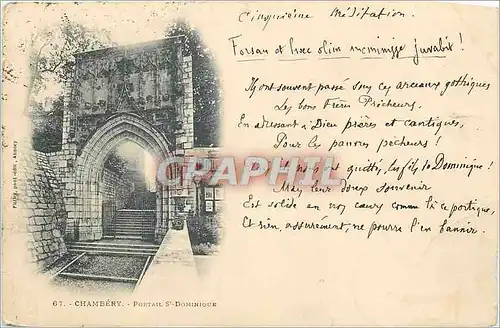 Cinquième Méditation.
Forsan et hæc olim meminisse juvabit!
Ils ont souvent passé sous ces arceaux gothiques
Les bons Frères Prêcheurs.
En adressant à Dieu prières et cantiques,
Pour les pauvres pécheurs!
Ils nous ont quittés, les fils de Dominique!
Mais leur doux souvenir
Est solide en nos cœurs comme l'è ce portique,
Et rien, assurément, ne pourra l'en bannir.
CPARAMA.COM
67. - CHAMBÉRY. - PORTAIL St-DOMINIQUE